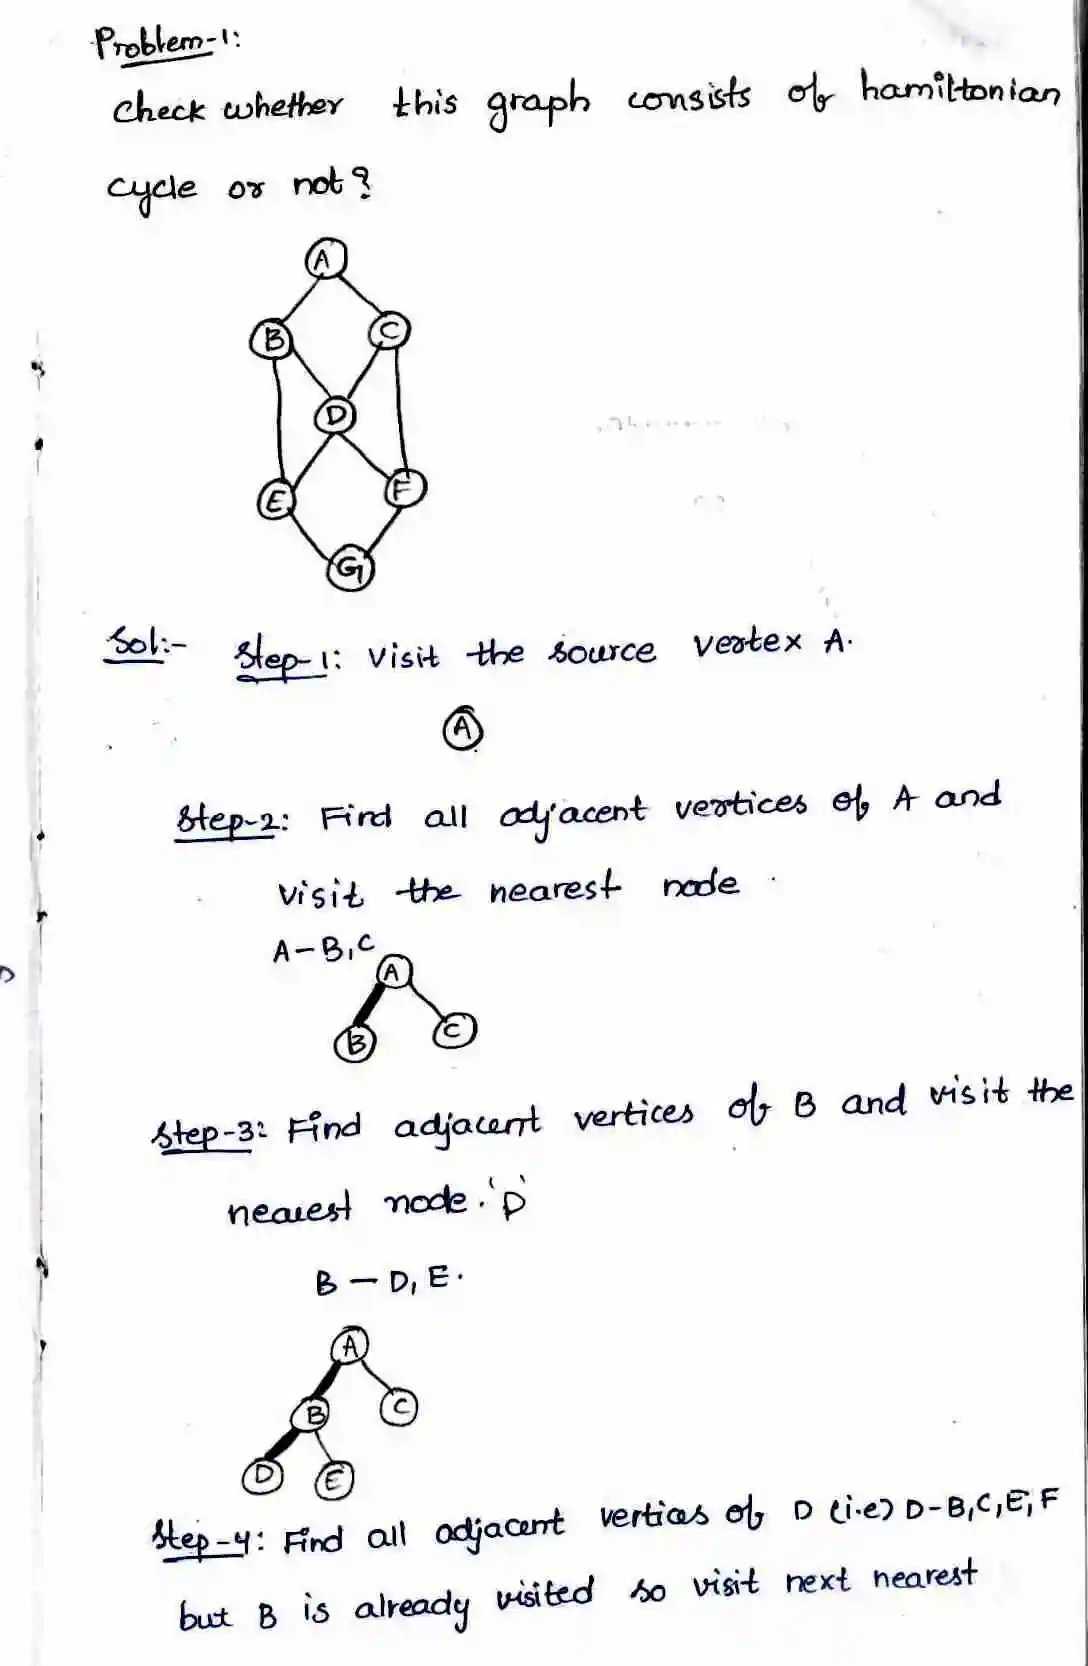 Problem-1:
Check whether this graph consists of hamiltonian
cycle or not?
A
B
C
D
E
F
G
Sol:- Step-1: Visit the source vertex A.
A
Step-2: Find all adjacent vertices of A and
visit the nearest node
A-B,C
A
B
C
Step-3: Find adjacent vertices of B and visit the
nearest node. 'D'
B - D, E.
A
B
C
D
E
Step-4: Find all adjacent vertices of D (i.e) D-B,C,E,F
but B is already visited so visit next nearest